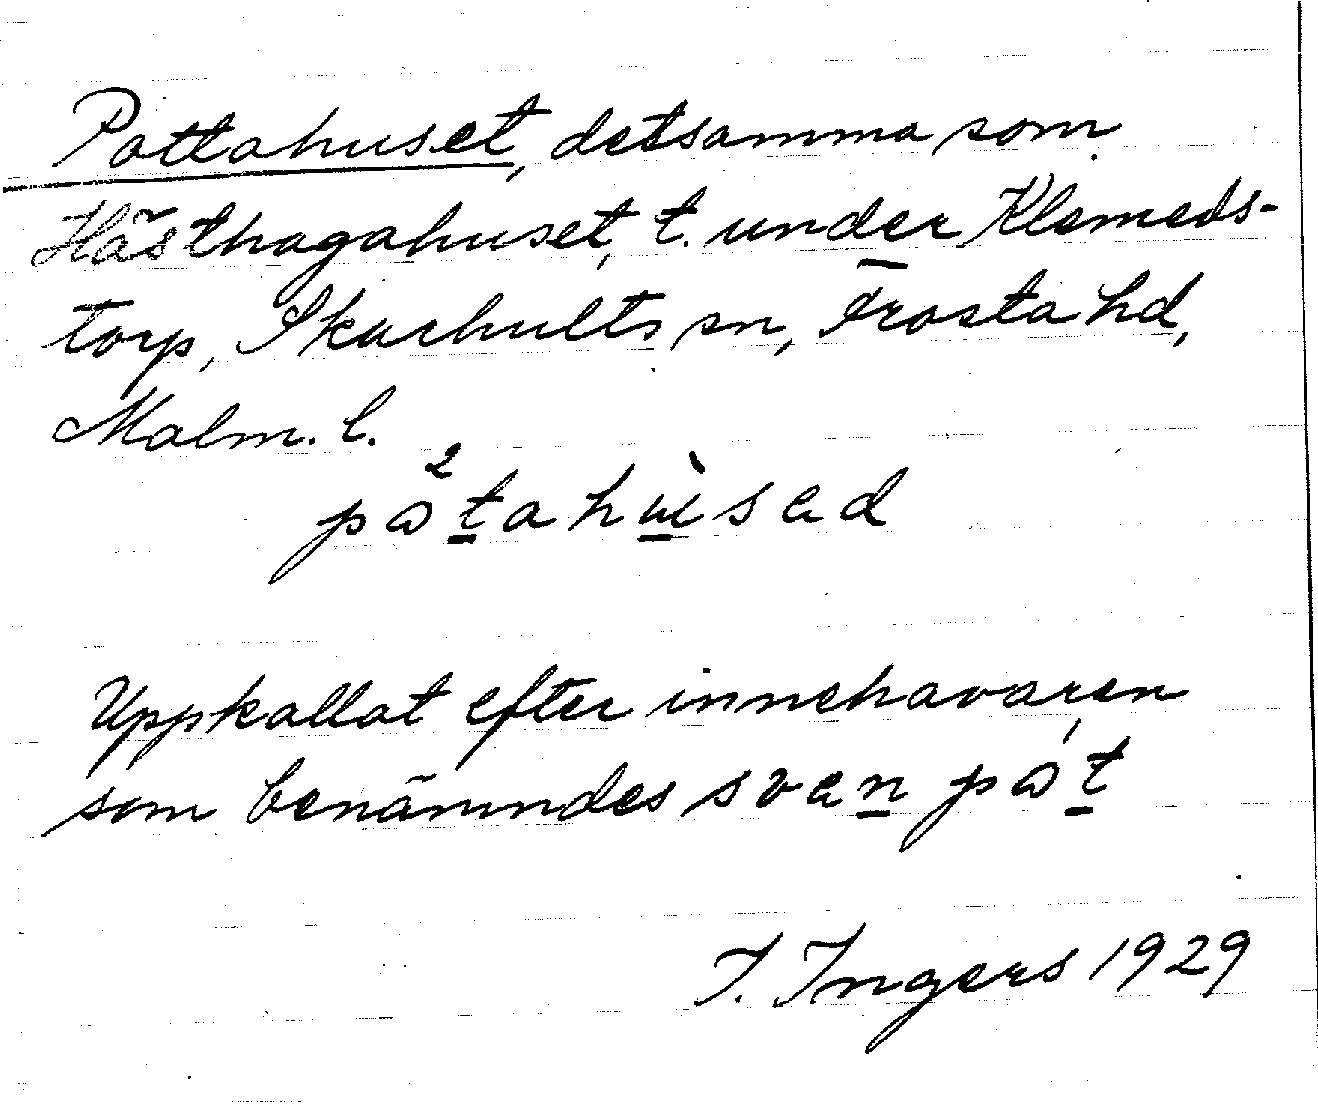 Pottahuset, detsamma som
Hästhagahuset, t. under Klemeds-
torp, Skarhults sn, Frosta hd,
Malm. l.
påtahusad
Uppkallat efter innehavaren
som benämndes sven påt
I. Ingers 1929